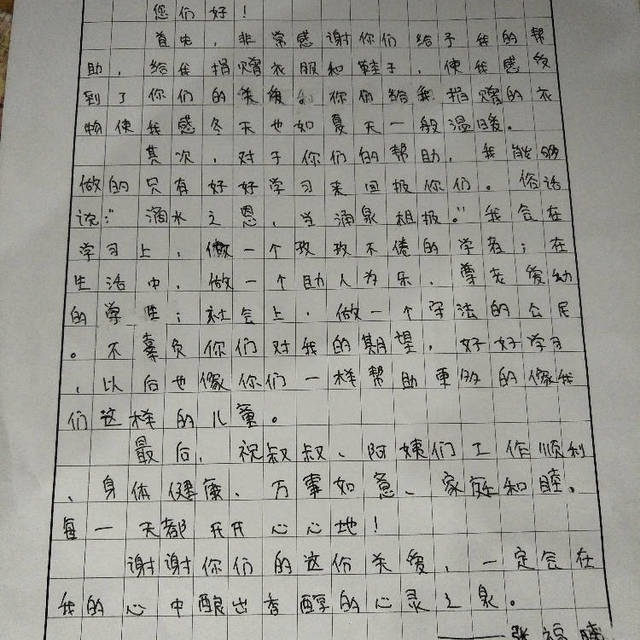 您们好！
首先，非常感谢你们给予我的帮
助，给我捐赠衣服和鞋子，使我感受
到了你们的关爱，你们给我捐赠的衣
物使我感冬天也如夏天一般温暖。
其次，对于你们的帮助，我能够
做的只有好好学习来回报你们。俗话
说："滴水之恩，当涌泉相报。"我会在
学习上，做一个孜孜不倦的学者；在
生活中，做一个助人为乐，尊老爱幼
的学生；社会上，做一个守法的公民
。不辜负你们对我的期望，好好学习
，以后也像你们一样帮助更多的像我
们这样的儿童。
最后，祝叔叔、阿姨们工作顺利
、身体健康、万事如意、家庭和睦。
每一天都开开心心地！
谢谢你们的这份关爱，一定会在
我的心中酿出香醇的心灵之泉。